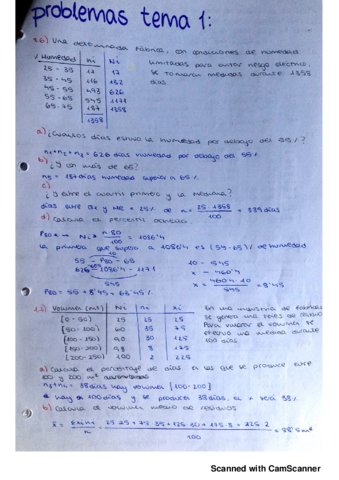 problemas tema 1:
1.6) Una determinada fábrica, con condiciones de humedad
% Humedad ni Ni limitadas para evitar riesgo eléctrico.
25 - 35 17 17 Se tomaron medidas durante 1358
35 - 45 116 132 días
45 - 55 493 626
55 - 65 545 1171
65 - 75 187 1358
1358
a) ¿Cuántos días estuvo la humedad por debajo del 55%?
n1+n2+n3 = 626 días humedad por debajo del 55%
b) ¿Y con más de 65?
n5 = 187 días humedad superior a 65%
c) ¿Y entre el cuartil primero y la Mediana?
días entre Q1 y Me = 25% de n = 25·1358 / 100 = 339 días
d) Calcula el percentil ochenta.
P80 → Ni > n·80 / 100 = 1086'4
la primera que supera a 1086'4 es (55-65)% de humedad
10
55 - P80 - 65 10 - 545
626 - 1086'4 - 1171 x - 460'4
545 x = 460'4·10 / 545 = 8'45
P80 = 55 + 8'45 = 63'45%
1.7) Volumen (m³) Ni ni
[0 - 50) 25 25 25
[50 - 100) 60 35 75
[100 - 150) 90 30 125
[150 - 200) 98 8 175
[200 - 250) 100 2 225
se genera una serie de
Para valorar el volumen se
efectúa una medida durante
100 días.
a) Calcula el porcentaje de días en los que se produce entre
100 y 200 m³
n3+n4 = 38 días hay volumen [100-200]
hay 100 días y se producen 38 días, el % será 38%
b) Calcula el volumen medio de residuos
x̄ = Σxi·ni / n = 25·25 + 75·35 + 125·30 + 175·8 + 225·2 / 100 = 88'5 m³
Scanned with CamScanner